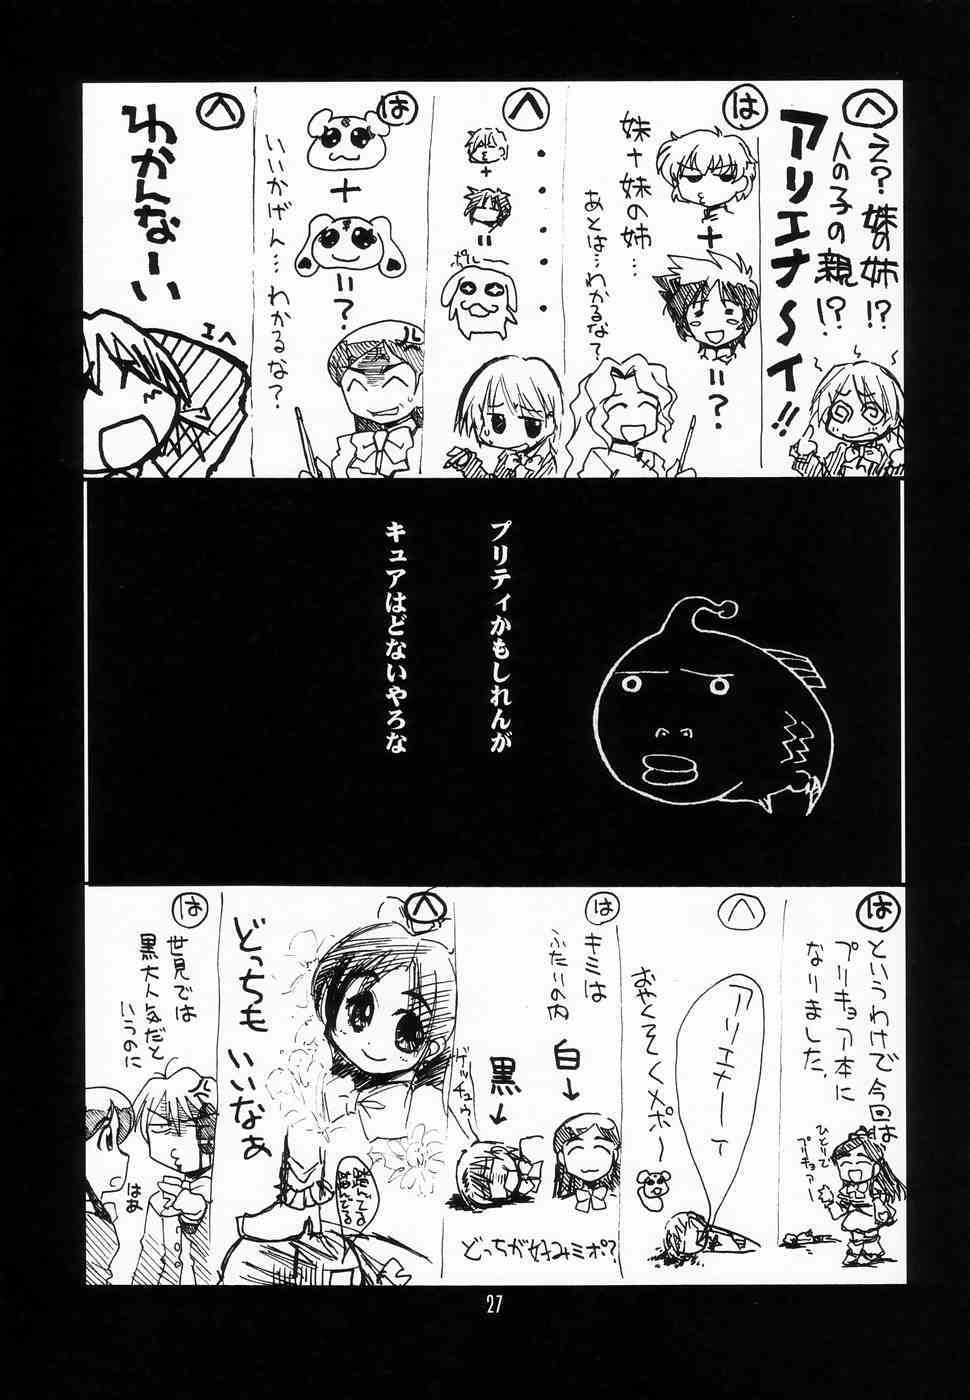 へ
え?妹の姉!?
人の子の親!?
アリエナ〜イ!!
は
妹+妹の姉…
あとは…わかるな?
+
=?
へ
・・・・・
+
=
ポルー
は
+
=?
いいかげん…わかるな?
へ
わかんなーい
エヘ
プリティかもしれんが
キュアはどないやろな
は
というわけで今回は
プリキュア本に
なりました。
ひとりで
プリキュアー
へ
アリエナーイ
おやくそくメポ〜
は
キミは
ふたりの内
白→
黒→
ゲッチュウ
どっちが好みミポ?
へ
どっちも
いいなぁ
踏んでる
踏んでる
は
世見では
黒大人気だと
いうのに
はあ
27